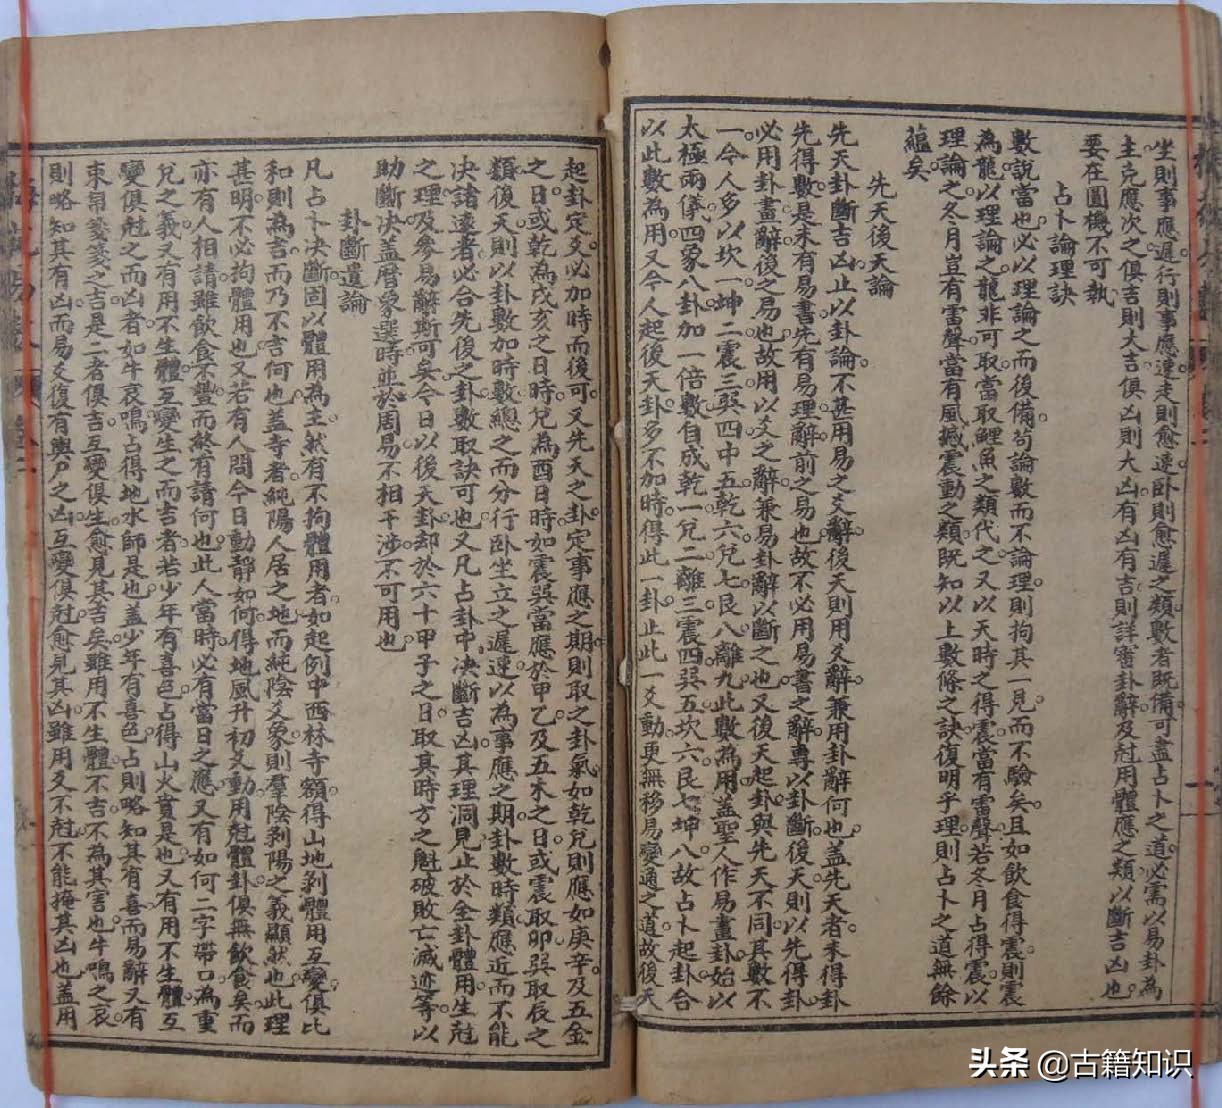 坐則事應遲行則事應速走則愈速卧則愈遲之類數者既備可盡占卜之道必需以易卦為
主克應次之俱吉則大吉俱凶則大凶有凶有吉則詳審卦辭及尅用體應之類以斷吉凶也
要在圓機不可執
占卜論理訣
數說當也必以理論之而後備苟論數而不論理則拘其一見而不驗矣且如飲食得震則震
為龍以理論之龍非可取當取鯉魚之類代之又以天時之得震當有雷聲若冬月占得震以
理論之冬月豈有雷聲當有風撼震動之類既知以上數條之訣復明乎理則占卜之道無餘
蘊矣
先天後天論
先天卦斷吉凶止以卦論不甚用易之爻辭後天則用爻辭兼用卦辭何也蓋先天者未得卦
先得數是未有易書先有易理辭前之易也故不必用易書之辭專以卦斷後天則以先得卦
必用卦畫辭後之易也故用以爻之辭兼易卦辭以斷之也又後天起卦與先天不同其數不
一今人多以坎一坤二震三巽四中五乾六兌七艮八離九此數為用蓋聖人作易畫卦始以
太極兩儀四象八卦加一倍數自成乾一兌二離三震四巽五坎六艮七坤八故占卜起卦合
以此數為用又今人起後天卦多不加時得此一卦止此一爻動更無移易變通之道故後天
起卦定爻必加時而後可又先天之卦定事應之期則取之卦氣如乾兌則應如庚辛及五金
之日或乾為戌亥之日時兌為酉日時如震巽當應於甲乙及五木之日或震取卯巽取辰之
類後天則以卦數加時數總之而分行卧坐立之遲速以為事應之期卦數時類應近而不能
決諸遠者必合先後之卦數取訣可也又凡占卦中決斷吉凶其理洞見止於全卦體用生尅
之理及參易辭斯可矣今日以後天卦却於六十甲子之日取其時方之魁破敗亡滅迹等以
助斷決蓋曆象選時並於周易不相干涉不可用也
卦斷遺論
凡占卜決斷固以體用為主然有不拘體用者如起例中西林寺額得山地剝體用互變俱比
和則為吉而乃不吉何也蓋寺者純陽人居之地而純陰爻象則羣陰剝陽之義顯然也此理
甚明不必拘體用也又若有人問今日動靜如何得地風升初爻動用尅體卦俱無飲食矣而
亦有人相請雖飲食不豐而終有請何也此人當時必有當日之應又有如何二字帶口為重
兌之義又有用不生體互變生之而吉者若少年有喜色占得山火賁是也又有用不生體互
變俱尅之而凶者如牛哀鳴占得地水師是也蓋少年有喜色占則略知其有喜而易辭又有
束帛箋箋之吉是二者俱吉互變俱生愈見其吉矣雖用不生體不吉不為其害也牛鳴之哀
則略知其有凶而易爻復有輿尸之凶互變俱尅愈見其凶雖用爻不尅不能掩其凶也蓋用
头条 @古籍知识